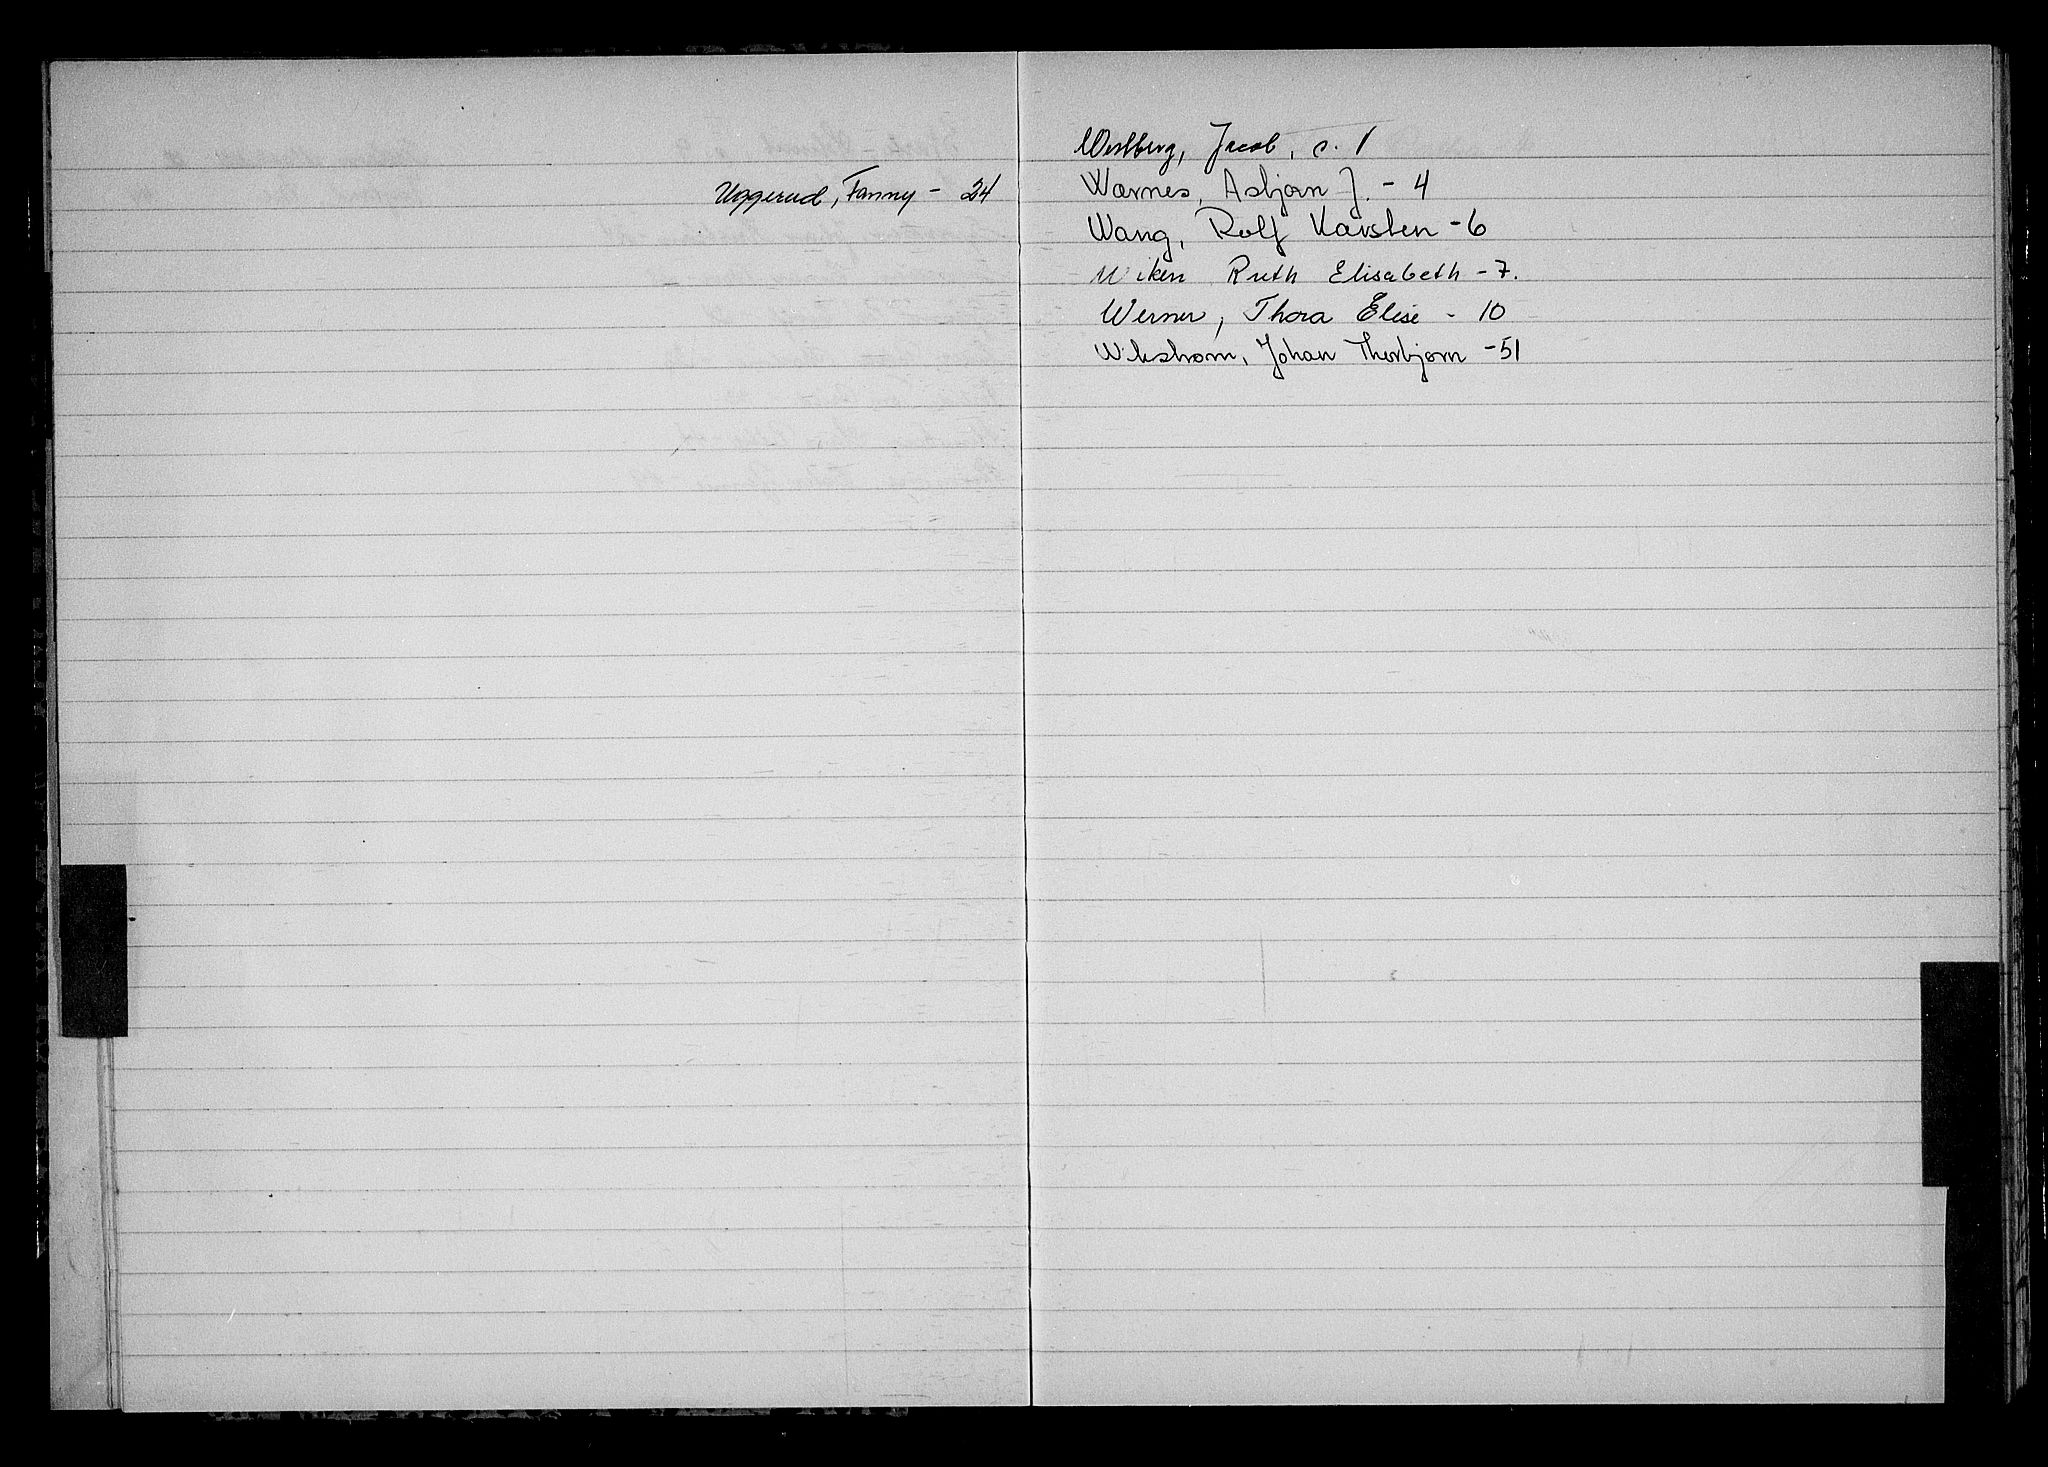 Uggerud, Fanny - 24
Westberg, Jacob, s. 1
Wærnes, Asbjørn J. - 4
Wang, Rolf Karsten - 6
Wiken Ruth Elisabeth - 7.
Werner, Thora Elise - 10
Wikstrøm, Johan Thorbjørn - 51